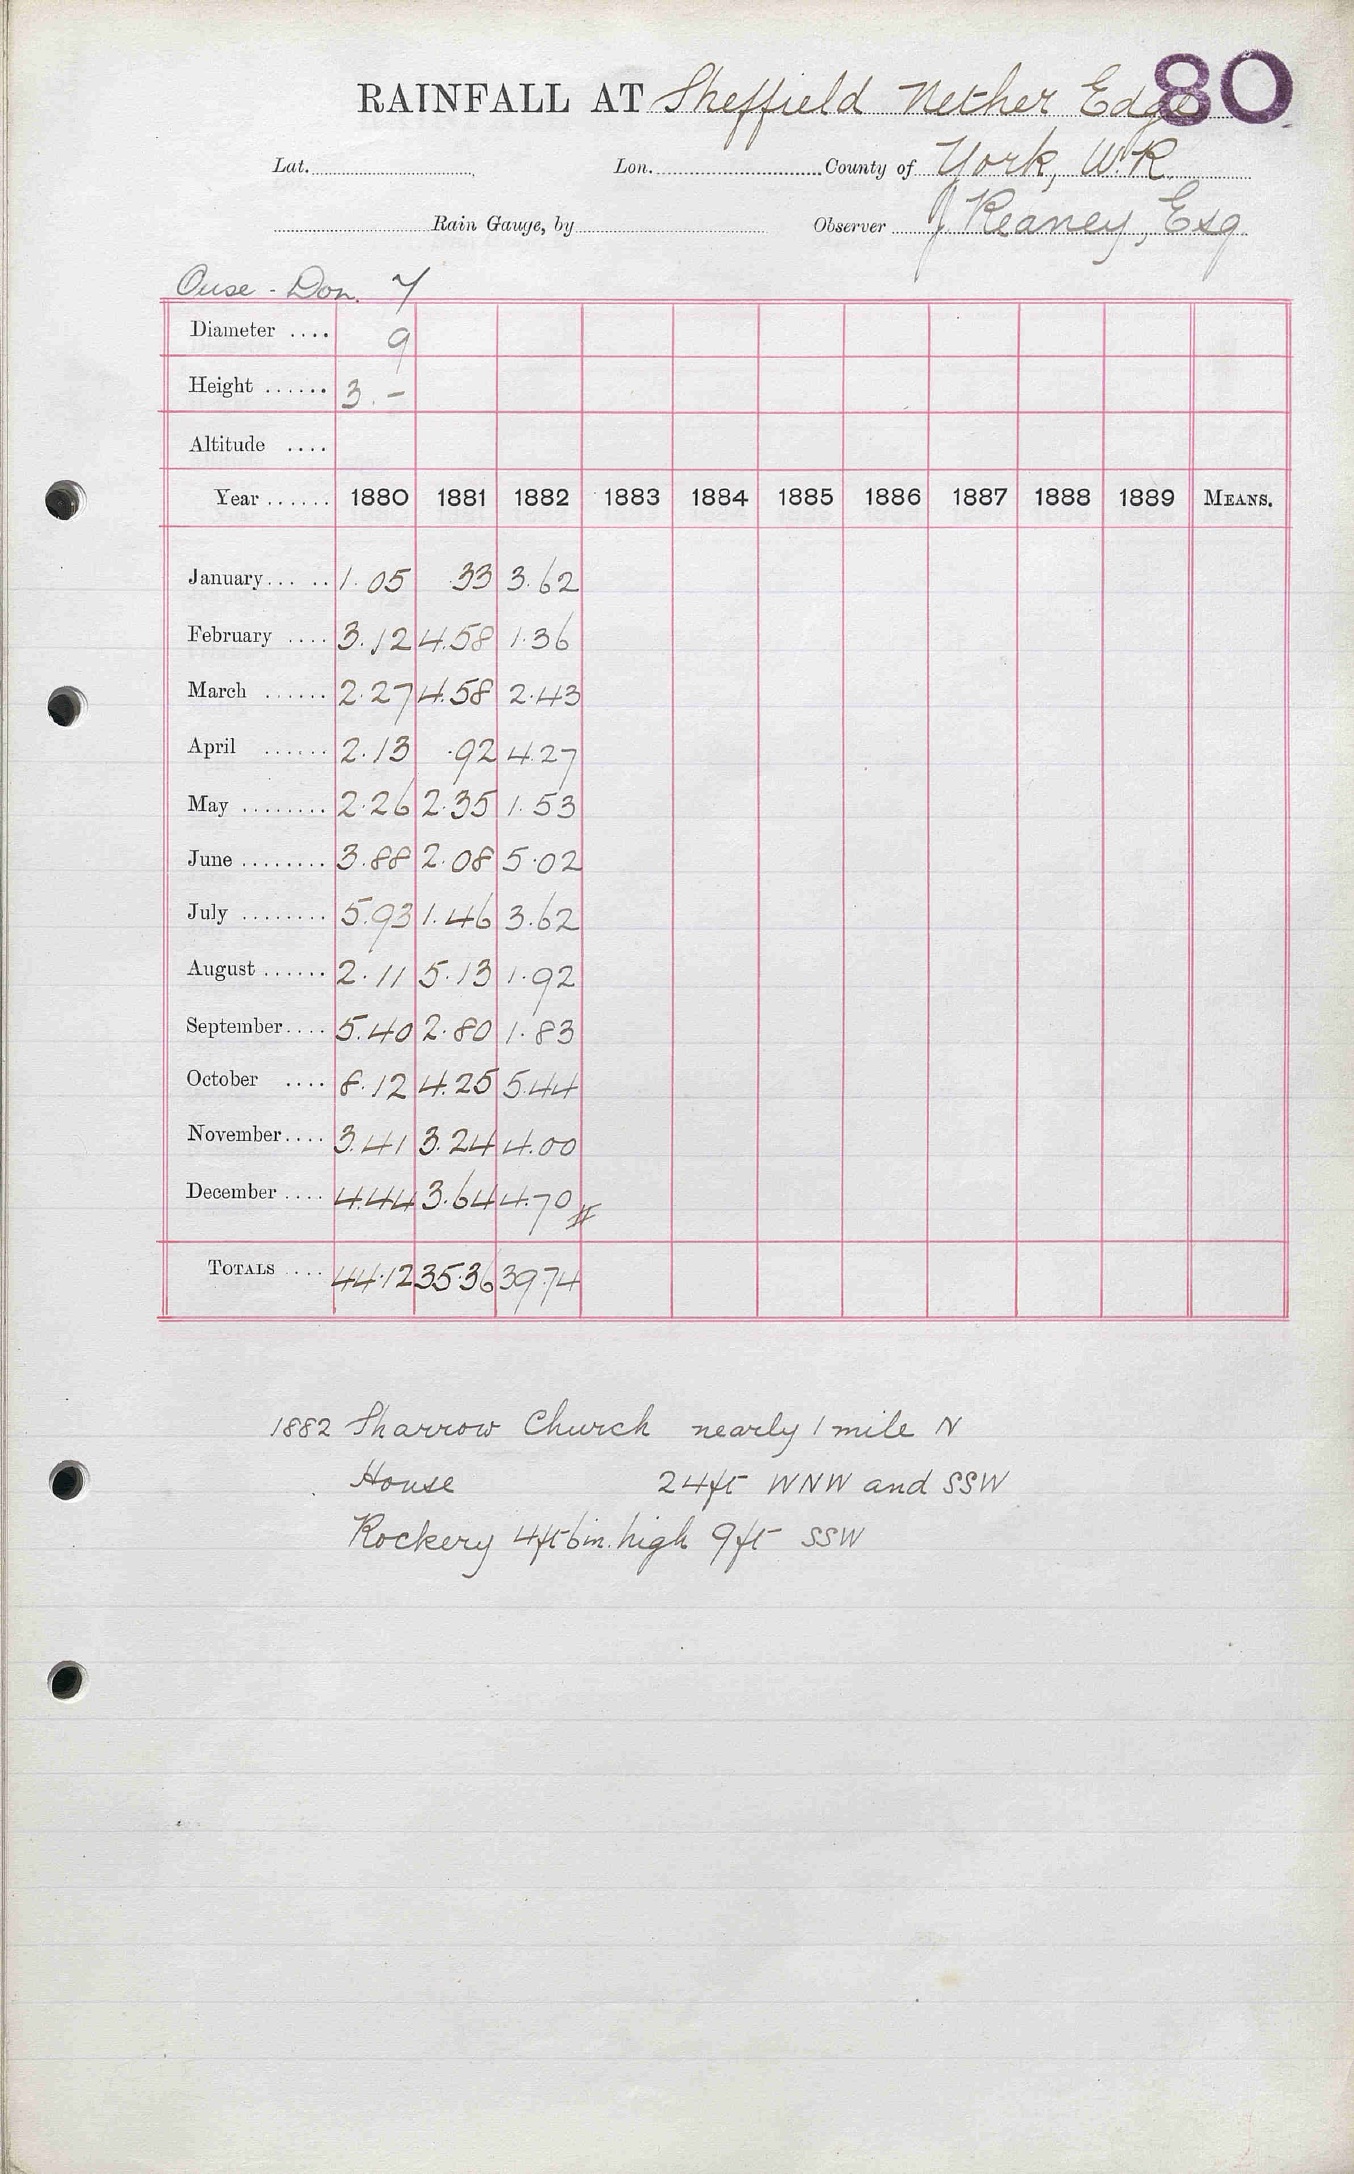 80
RAINFALL AT Sheffield Nether Edge
Lat. Lon. County of York, W.R.
Rain Gauge, by Observer J Reaney, Esq
Ouse - Don. 7
Diameter .... 9
Height ...... 3.-
Altitude ....
Year ...... 1880 1881 1882 1883 1884 1885 1886 1887 1888 1889 MEANS.
January ..... 1.05 .33 3.62
February .... 3.12 4.58 1.36
March ...... 2.27 4.58 2.43
April ...... 2.13 .92 4.27
May ........ 2.26 2.35 1.53
June ........ 3.88 2.08 5.02
July ........ 5.93 1.46 3.62
August ...... 2.11 5.13 1.92
September .... 5.40 2.80 1.83
October .... 8.12 4.25 5.44
November .... 3.41 3.24 4.00
December .... 4.44 3.64 4.70
TOTALS .... 44.12 35.36 39.74
1882 Sharrow Church nearly 1 mile N
House 24ft WNW and SSW
Rockery 4ft 6in. high 9ft SSW